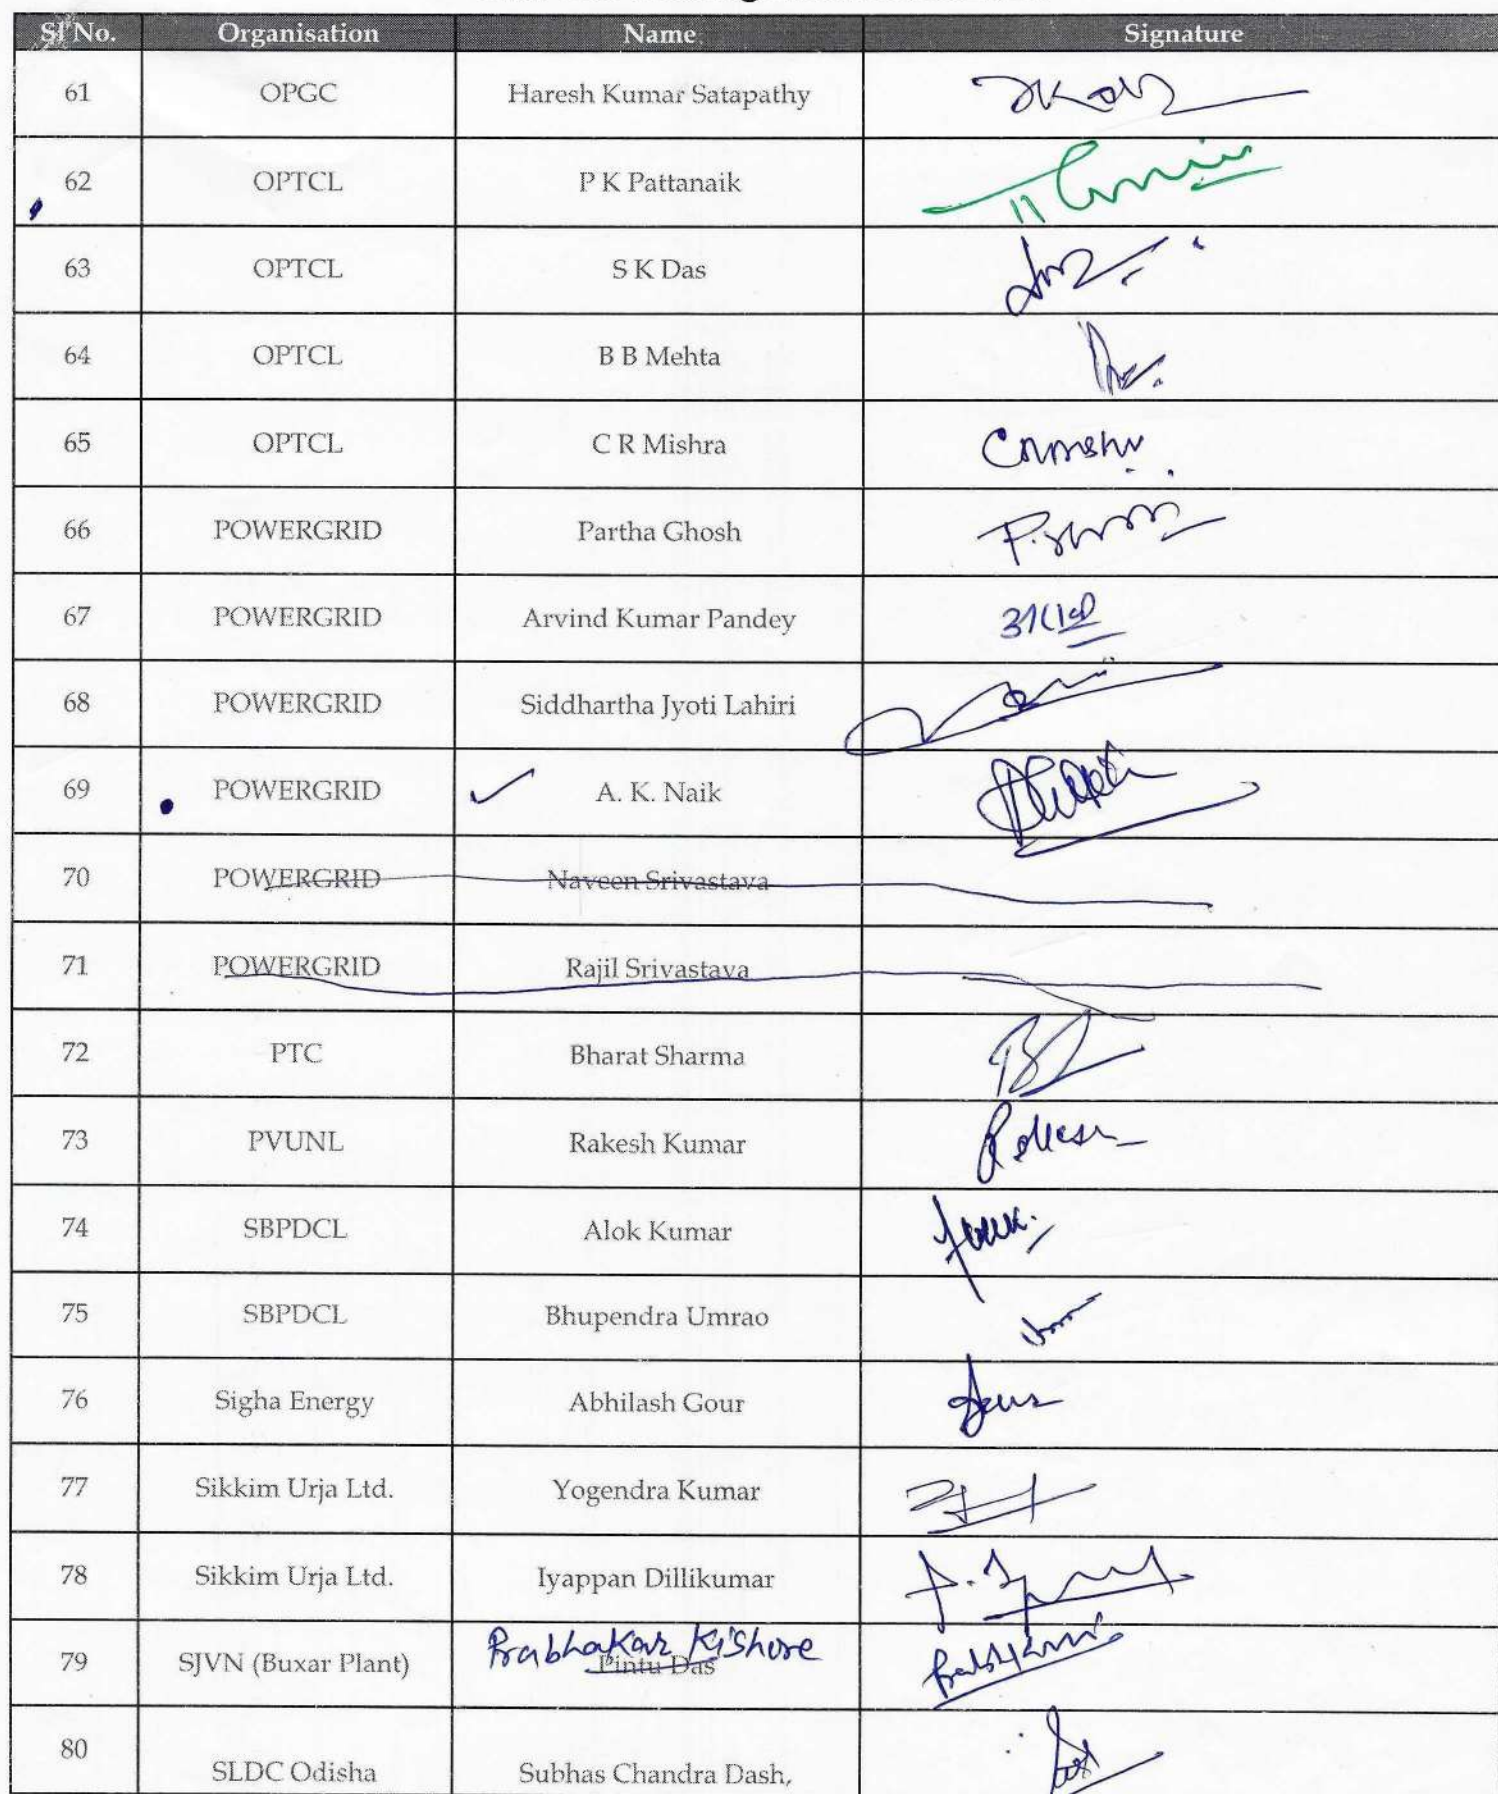 Sl No. Organisation Name Signature
61 OPGC Haresh Kumar Satapathy
62 OPTCL P K Pattanaik
63 OPTCL S K Das
64 OPTCL B B Mehta
65 OPTCL C R Mishra
66 POWERGRID Partha Ghosh
67 POWERGRID Arvind Kumar Pandey
68 POWERGRID Siddhartha Jyoti Lahiri
69 POWERGRID A. K. Naik
70 POWERGRID Naveen Srivastava
71 POWERGRID Rajil Srivastava
72 PTC Bharat Sharma
73 PVUNL Rakesh Kumar
74 SBPDCL Alok Kumar
75 SBPDCL Bhupendra Umrao
76 Sigha Energy Abhilash Gour
77 Sikkim Urja Ltd. Yogendra Kumar
78 Sikkim Urja Ltd. Iyappan Dillikumar
Prabhakar Kishore
79 SJVN (Buxar Plant) Pintu Das
80
SLDC Odisha Subhas Chandra Dash,